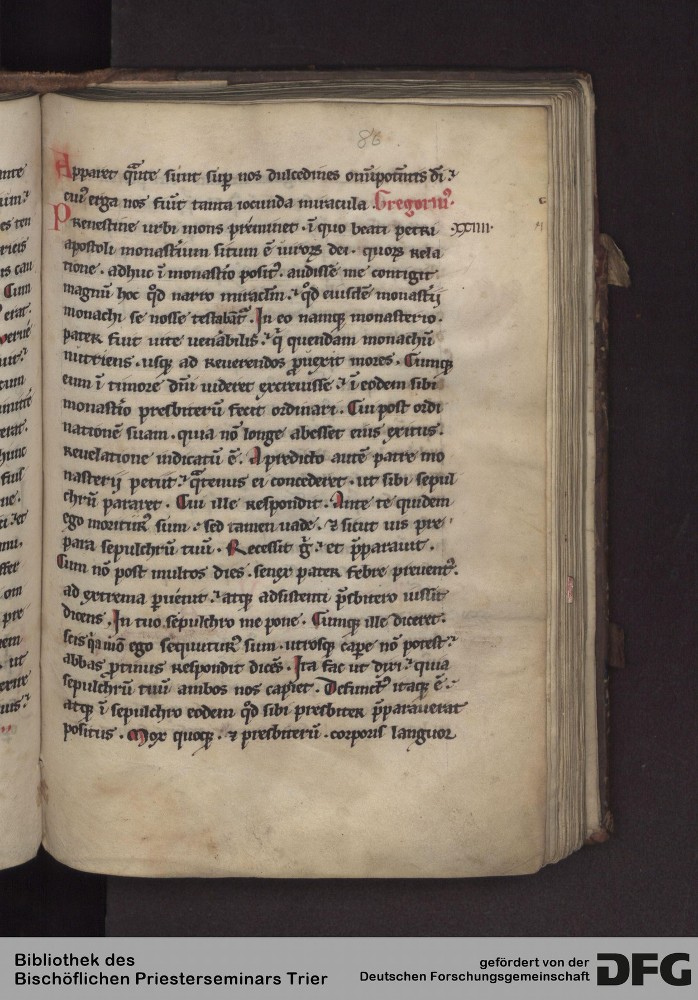 86
Apparet q̄nte sunt sup̄ nos dulcedines om̄ipotētis dī ⁊
cui᷒ erga nos fiūt tanta iocunda miracula. Gregorius.
Prenestine urbi mons p̄eminet. ī quo beati petri .xxiiii.
apostoli monastīum situm ē uiroꝝ dei. quoꝝ rela
tione. adhuc ī monastīo posit᷒. audisse me contigit
magnū hoc qd̄ narro miraclm̄. ⁊ qd̄ eiusdē monastīj
monachi se nosse testabāt᷒. In eo namqꝫ monasterio.
pater fuit uite uenābilis. ⁊ q̄ quendam monachū
nutriens. usqꝫ ad reuerendos ꝓuexit mores. Cumqꝫ
eum ī timore dn̄i uideret excreuisse. ⁊ ī eodem sibi
monastīo presbiterū fecit ordinari. Cui post ordi
nationē suam. quia nō longe abesset eius exitus.
reuelatione indicatū ē. A predicto autē patre mo
nasterij petiit. q̄tenus ei concederet. ut sibi sepul
chrū pararet. Cui ille respondit. Ante te quidem
ego moritur᷒ sum. sed tamen uade. ⁊ sicut uis pre
para sepulchrū tuū. Recessit ḡ. et p̄parauit.
Cum nō post multos dies. senex pater febre preuent᷒.
ad extrema ꝑuenit. atqꝫ adsistenti p̄sbitero iussit
dicens. In tuo sepulchro me pone. Cumqꝫ ille diceret.
scis q̄a mō ego sequutur᷒ sum. utrosqꝫ cape nō potest.
abbas ꝓtinus respondit dicēs. Ita fac ut dixi. quia
sepulchrū tuū ambos nos capiet. Defunct᷒ itaqꝫ ē.
atqꝫ ī sepulchro eodem qd̄ sibi presbiter p̄parauerat
positus. Mox quoqꝫ. ⁊ presbiterū. corporis languor
Bibliothek des
Bischöflichen Priesterseminars Trier
gefördert von der
Deutschen Forschungsgemeinschaft
DFG